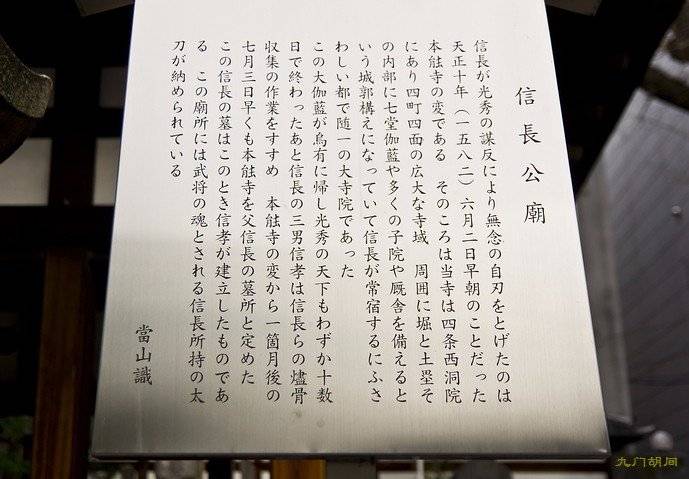 信長公廟
信長が光秀の謀反により無念の自刃をとげたのは
天正十年（一五八二）六月二日早朝のことだった
本能寺の変である そのころは当寺は四条西洞院
にあり四町四面の広大な寺域 周囲に堀と土塁そ
の内部に七堂伽藍や多くの子院や厩舎を備えると
いう城郭構えになっていて信長が常宿するにふさ
わしい都で随一の大寺院であった
この大伽藍が烏有に帰し光秀の天下もわずか十数
日で終わったあと信長の三男信孝は信長らの燼骨
収集の作業をすすめ 本能寺の変から一箇月後の
七月三日早くも本能寺を父信長の墓所と定めた
この信長の墓はこのとき信孝が建立したものであ
る この廟所には武将の魂とされる信長所持の太
刀が納められている
當山識
九门胡同